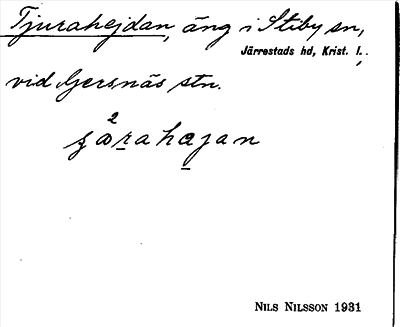 Tjurahejdan, äng i Stiby sn,
Järrestads hd, Krist. l.,
vid Gersnäs stn.
NILS NILSSON 1931